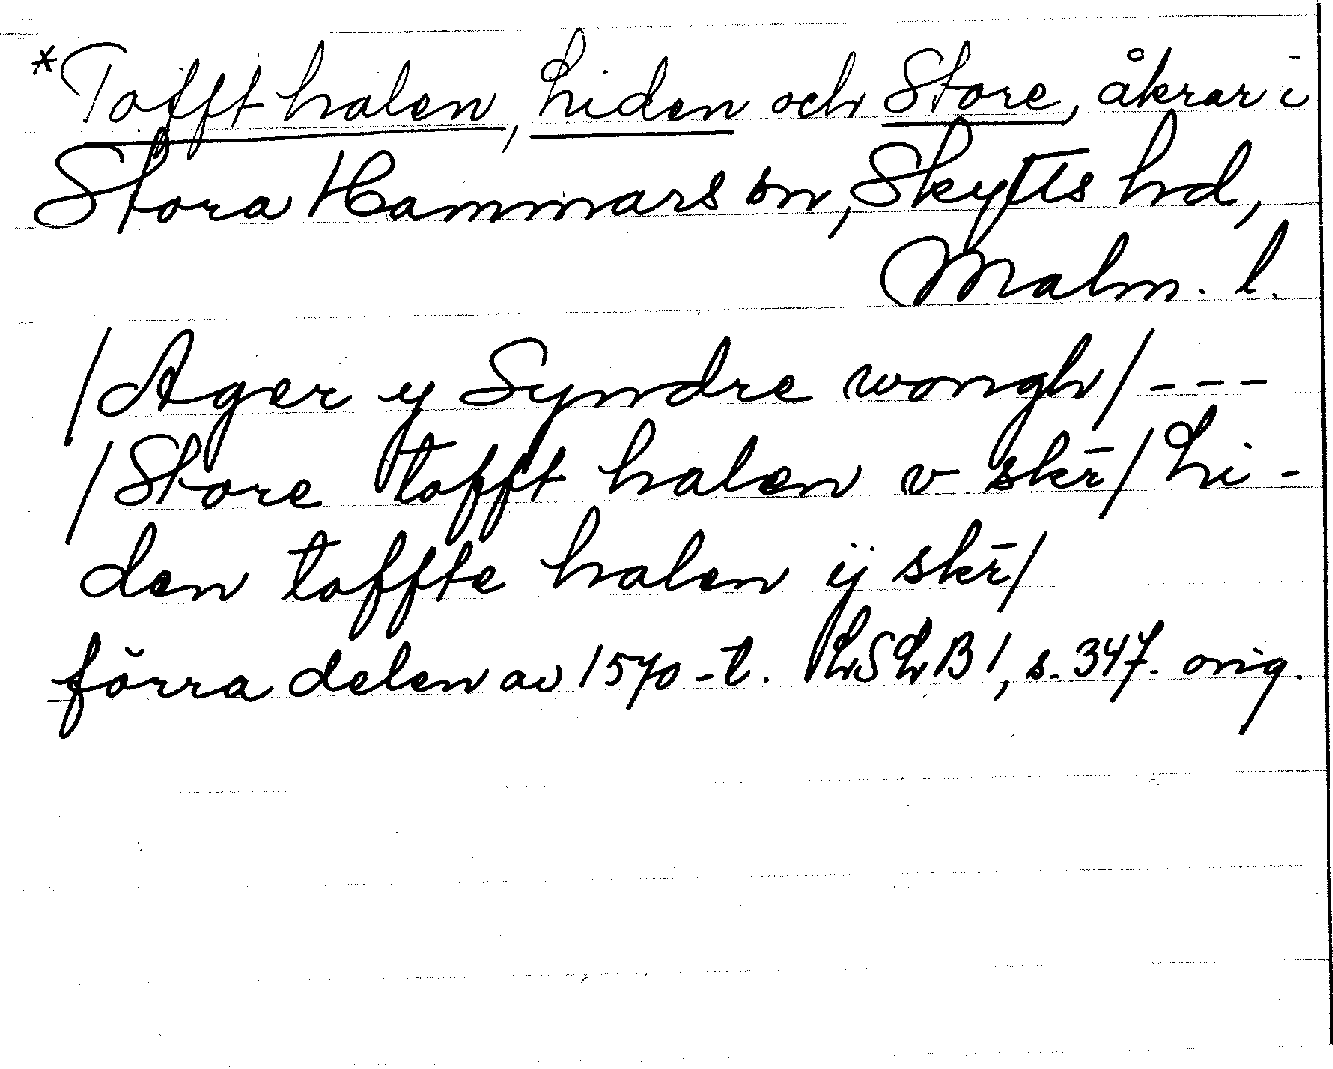 *Tofft halen, Liden och Store, åkrar i
Stora Hammars sn, Skytts hd,
Malm. l.
/Ager y Syndre wongh/ ---
/Store tofft halen v skr̄/ Li-
den toffte halen ij skr̄/
förra delen av 1570-t. LSLB 1, s. 347. orig.